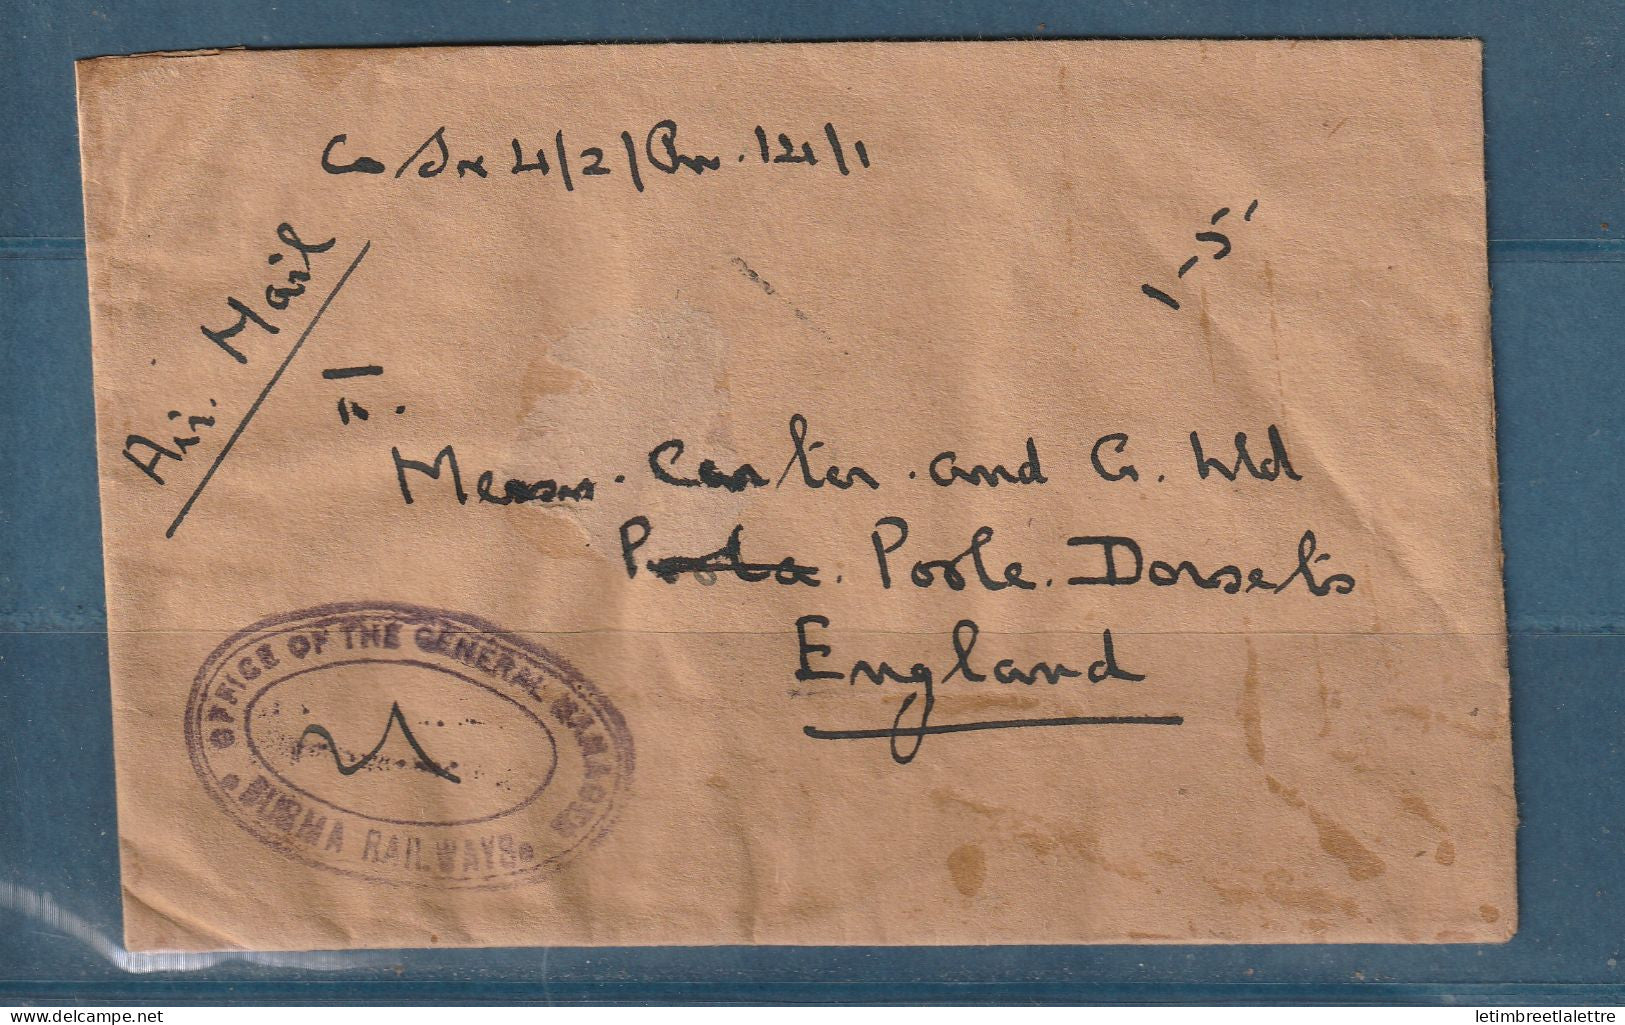 4/2/Pm. 121/1
1-5'
Air. Mail
Messrs. Carter. and Co. Ltd
Poole. Dorsets
England
OFFICE OF THE GENERAL MANAGER
BURMA RAILWAYS
delcampe.net
letimbreetlalettre